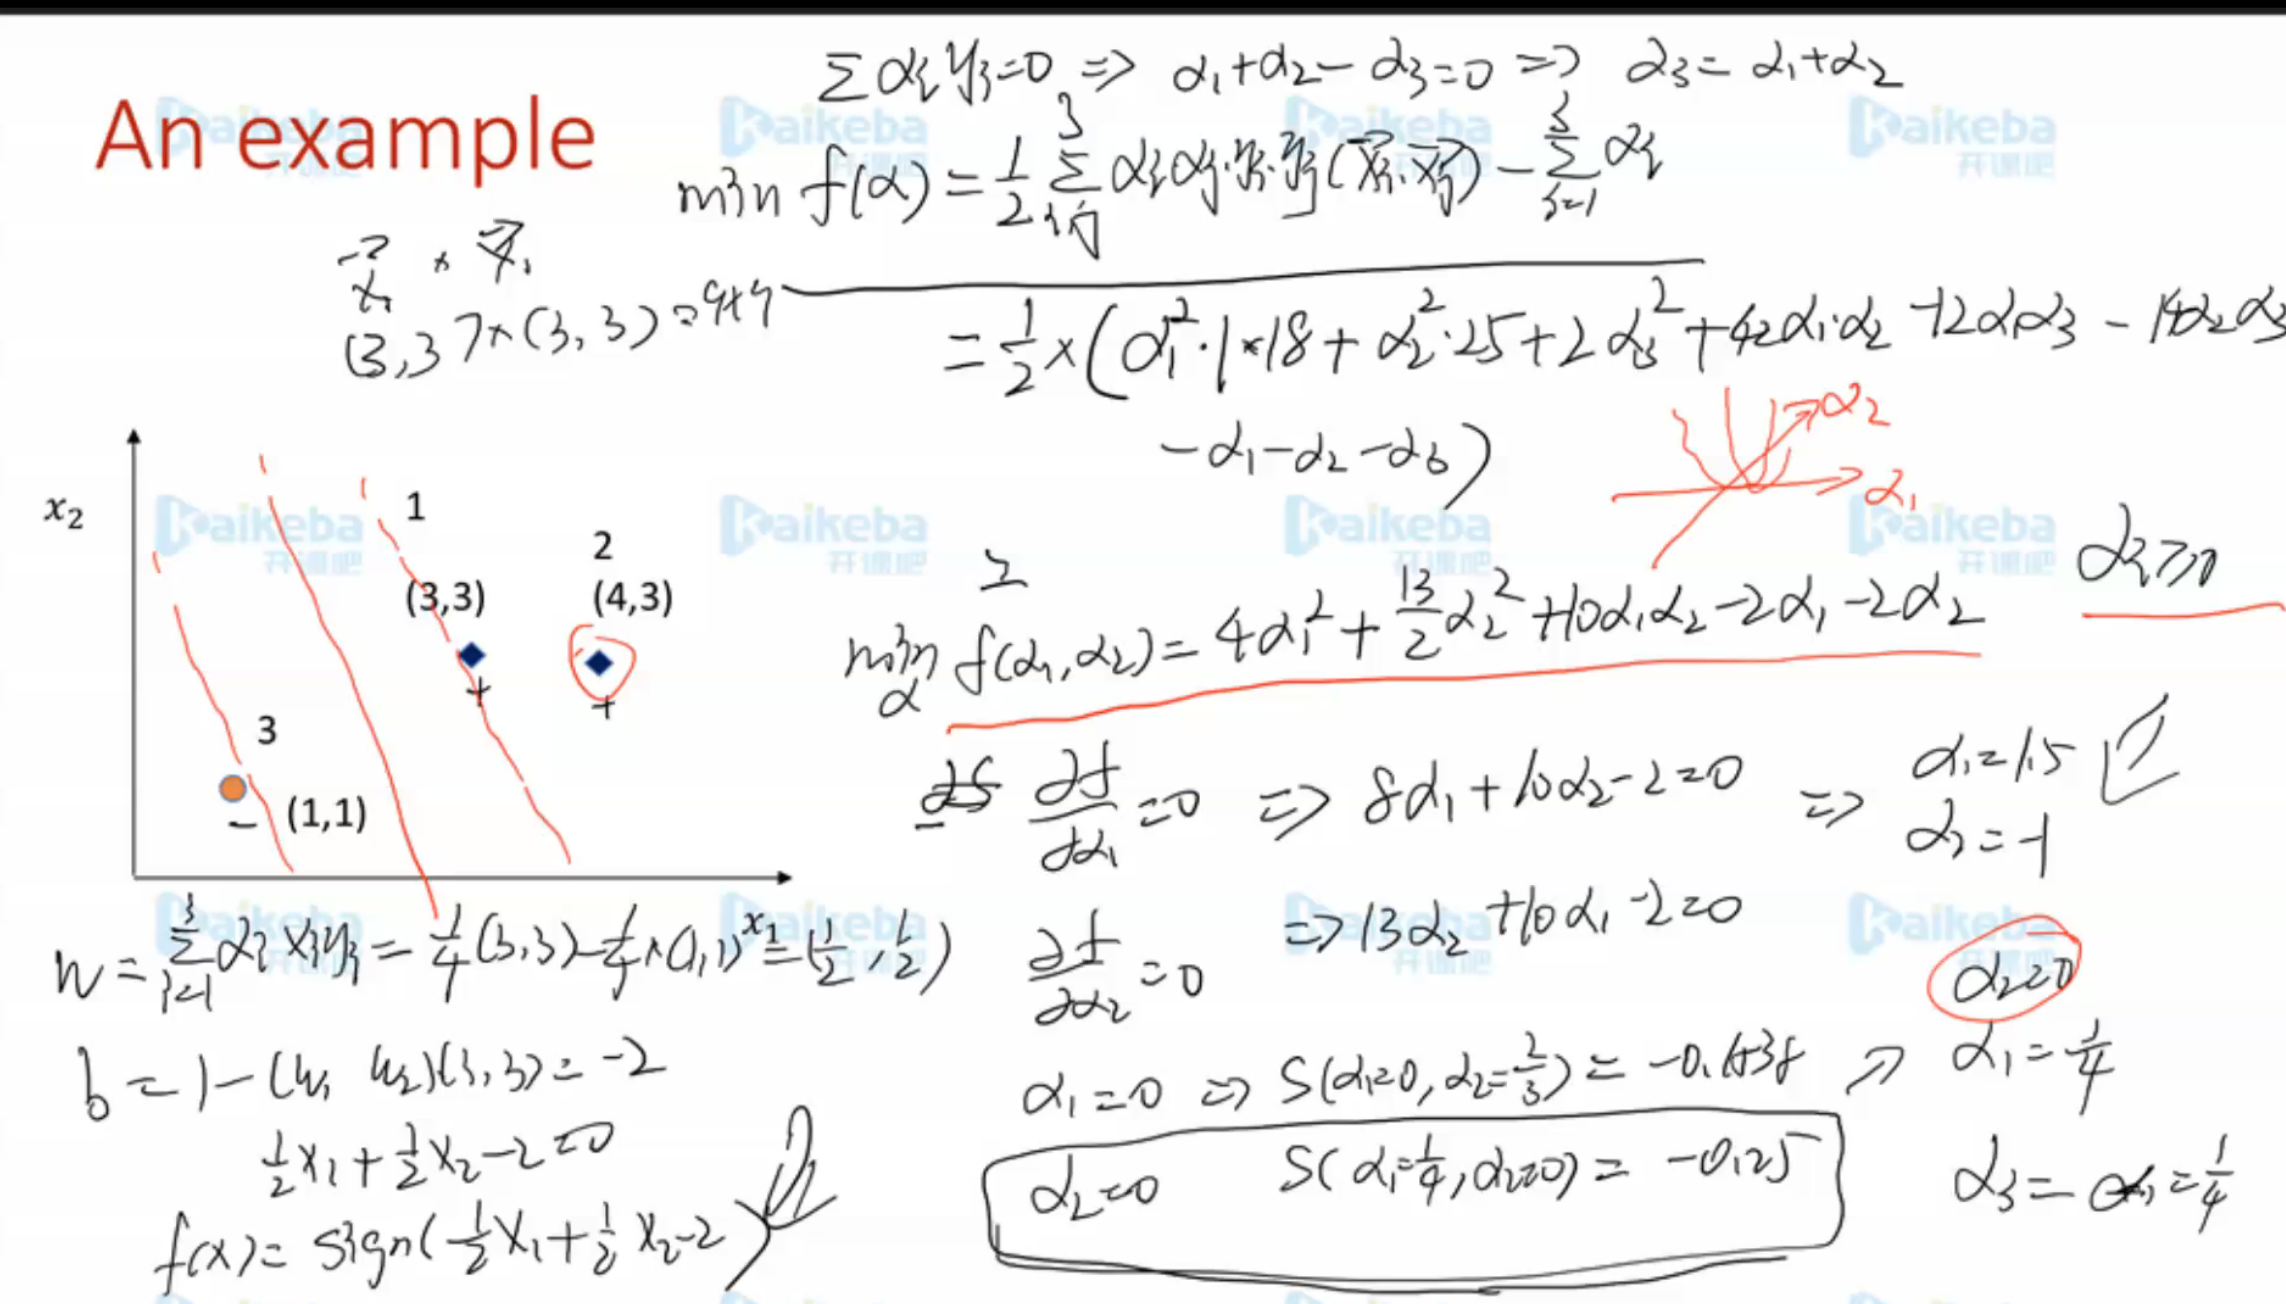 An example
∑αᵢyᵢ=0 => α₁+α₂-α₃=0 => α₃=α₁+α₂
min f(α) = 1/2 ∑ αᵢαⱼ·yᵢ·yⱼ(xᵢ·xⱼ) - ∑ αᵢ
x₁ · x₁
(3,3)×(3,3)=9+9
= 1/2 × (α₁²·1×18 + α₂²·25 + 2α₃² + 42α₁·α₂ - 12α₁α₃ - 14α₂α₃
-α₁-α₂-α₃)
α₂
α₁
x₂
1
(3,3)
+
2
(4,3)
+
3
(1,1)
-
x₁
αᵢ≥0
min f(α₁,α₂) = 4α₁² + 13/2 α₂² + 10α₁α₂ - 2α₁ - 2α₂
α
∂f/∂α₁ = 0 => 8α₁+10α₂-2=0 => α₁=1.5
α₂=-1
∂f/∂α₂ = 0 => 13α₂+10α₁-2=0
α₂=0
α₁=0 => S(α₁=0, α₂=2/3) = -0.1538
α₁=1/4
α₂=0 S(α₁=1/4, α₂=0) = -0.25
α₃=α₁=1/4
w = ∑ αᵢxᵢyᵢ = 1/4 (3,3) - 1/4×(1,1) = (1/2, 1/2)
b = 1-(w₁ w₂)(3,3) = -2
1/2 x₁ + 1/2 x₂ - 2 = 0
f(x) = sign(1/2 x₁ + 1/2 x₂ - 2)
Kaikeba
开课吧